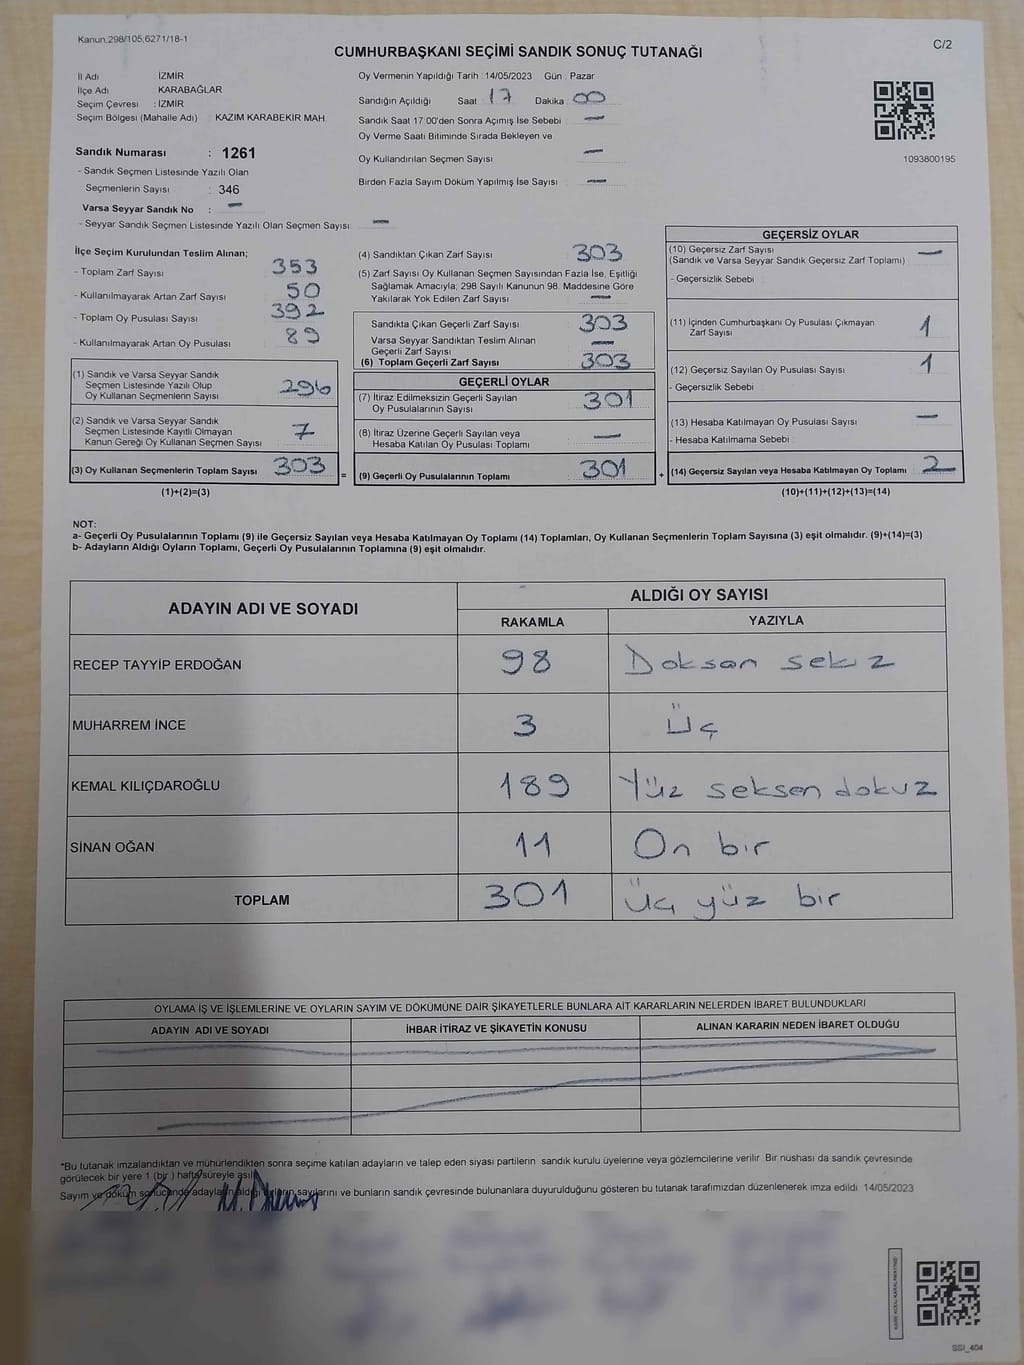 Kanun;298/105;6271/18-1
C/2
CUMHURBAŞKANI SEÇİMİ SANDIK SONUÇ TUTANAĞI
İl Adı İZMİR
İlçe Adı KARABAĞLAR
Seçim Çevresi : İZMİR
Seçim Bölgesi (Mahalle Adı) KAZIM KARABEKİR MAH.
Sandık Numarası : 1261
- Sandık Seçmen Listesinde Yazılı Olan
Seçmenlerin Sayısı : 346
Varsa Seyyar Sandık No : -
- Seyyar Sandık Seçmen Listesinde Yazılı Olan Seçmen Sayısı: -
Oy Vermenin Yapıldığı Tarih : 14/05/2023 Gün : Pazar
Sandığın Açıldığı Saat 17 Dakika 00
Sandık Saat 17:00'den Sonra Açımış İse Sebebi : -
Oy Verme Saati Bitiminde Sırada Bekleyen ve
Oy Kullandırılan Seçmen Sayısı -
Birden Fazla Sayım Döküm Yapılmış İse Sayısı -
1093800195
İlçe Seçim Kurulundan Teslim Alınan;
- Toplam Zarf Sayısı 353
- Kullanılmayarak Artan Zarf Sayısı 50
- Toplam Oy Pusulası Sayısı 392
- Kullanılmayarak Artan Oy Pusulası 89
(1) Sandık ve Varsa Seyyar Sandık
Seçmen Listesinde Yazılı Olup
Oy Kullanan Seçmenlerin Sayısı 296
(2) Sandık ve Varsa Seyyar Sandık
Seçmen Listesinde Kayıtlı Olmayan
Kanun Gereği Oy Kullanan Seçmen Sayısı 7
(3) Oy Kullanan Seçmenlerin Toplam Sayısı 303
(1)+(2)=(3)
(4) Sandıktan Çıkan Zarf Sayısı 303
(5) Zarf Sayısı Oy Kullanan Seçmen Sayısından Fazla İse, Eşitliği
Sağlamak Amacıyla; 298 Sayılı Kanunun 98. Maddesine Göre
Yakılarak Yok Edilen Zarf Sayısı -
Sandıkta Çıkan Geçerli Zarf Sayısı 303
Varsa Seyyar Sandıktan Teslim Alınan
Geçerli Zarf Sayısı -
(6) Toplam Geçerli Zarf Sayısı 303
GEÇERLİ OYLAR
(7) İtiraz Edilmeksizin Geçerli Sayılan
Oy Pusulalarının Sayısı 301
(8) İtiraz Üzerine Geçerli Sayılan veya
Hesaba Katılan Oy Pusulası Toplamı -
= (9) Geçerli Oy Pusulalarının Toplamı 301 +
GEÇERSİZ OYLAR
(10) Geçersiz Zarf Sayısı -
(Sandık ve Varsa Seyyar Sandık Geçersiz Zarf Toplamı)
- Geçersizlik Sebebi
(11) İçinden Cumhurbaşkanı Oy Pusulası Çıkmayan
Zarf Sayısı 1
(12) Geçersiz Sayılan Oy Pusulası Sayısı 1
- Geçersizlik Sebebi
(13) Hesaba Katılmayan Oy Pusulası Sayısı -
- Hesaba Katılmama Sebebi
(14) Geçersiz Sayılan veya Hesaba Katılmayan Oy Toplamı 2
(10)+(11)+(12)+(13)=(14)
NOT:
a- Geçerli Oy Pusulalarının Toplamı (9) ile Geçersiz Sayılan veya Hesaba Katılmayan Oy Toplamı (14) Toplamları, Oy Kullanan Seçmenlerin Toplam Sayısına (3) eşit olmalıdır. (9)+(14)=(3)
b- Adayların Aldığı Oyların Toplamı, Geçerli Oy Pusulalarının Toplamına (9) eşit olmalıdır.
ADAYIN ADI VE SOYADI ALDIĞI OY SAYISI
RAKAMLA YAZIYLA
RECEP TAYYİP ERDOĞAN 98 Doksan sekiz
MUHARREM İNCE 3 Üç
KEMAL KILIÇDAROĞLU 189 Yüz seksen dokuz
SİNAN OĞAN 11 On bir
TOPLAM 301 Üç yüz bir
OYLAMA İŞ VE İŞLEMLERİNE VE OYLARIN SAYIM VE DÖKÜMÜNE DAİR ŞİKAYETLERLE BUNLARA AİT KARARLARIN NELERDEN İBARET BULUNDUKLARI
ADAYIN ADI VE SOYADI İHBAR İTİRAZ VE ŞİKAYETİN KONUSU ALINAN KARARIN NEDEN İBARET OLDUĞU
*Bu tutanak imzalandıktan ve mühürlendikten sonra seçime katılan adayların ve talep eden siyasi partilerin sandık kurulu üyelerine veya gözlemcilerine verilir. Bir nüshası da sandık çevresinde
görülecek bir yere 1 (bir ) hafta süreyle asılır
Sayım ve döküm sonucunda adayların aldığı oyların sayılarını ve bunların sandık çevresinde bulunanlara duyurulduğunu gösteren bu tutanak tarafımızdan düzenlenerek imza edildi. 14/05/2023
SSI_404